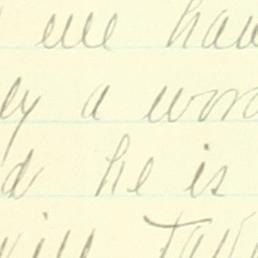 we hav
ly a wor
d he is
will tak